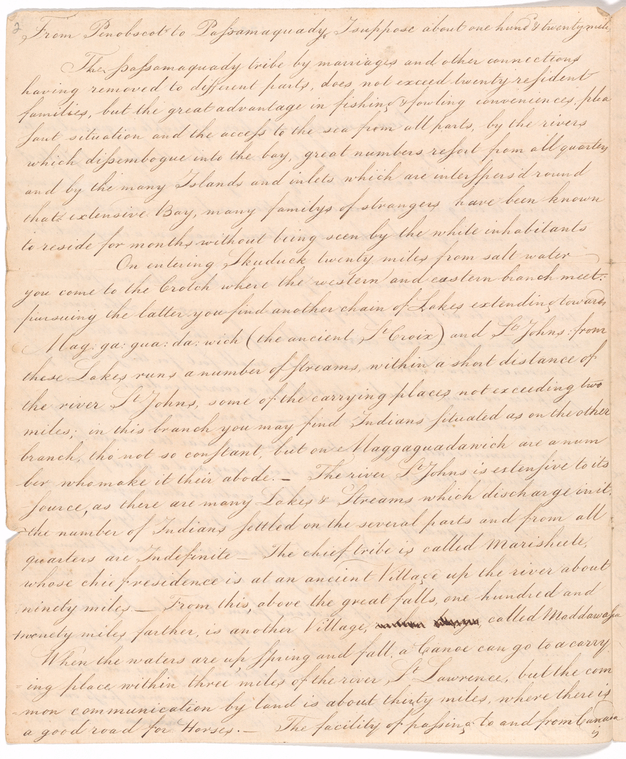 From Penobscot to Passamaquady, I suppose about one hund.d & twenty mile
The passamaquady tribe by marriages and other connections
having removed to different parts, does not exceed twenty resident
families, but the great advantage in fishing & fowling conveniences, plea
sant situation and the access to the sea from all parts, by the rivers
which dissembogue into the bay, great numbers resort from all quarters
and by the many Islands and inlets which are interspersd round
that extensive Bay, many familys of strangers have been known
to reside for months without being seen by the white inhabitants
On entering Skuduck twenty miles from salt water
you come to the Crotch where the western and eastern branch meet.
pursuing the latter you find another chain of Lakes extending towards
Mag: ga: gua: da: wich (the ancient St Croix) and St Johns: from
these Lakes runs a number of streams, within a short distance of
the river St Johns, some of the carrying places not exceeding two
miles: in this branch you may find Indians situated as on the other
branch, tho not so constant, but on Maggaguadawich are a num
ber who make it their abode. — The river St Johns is extensive to its
source, as there are many Lakes & Streams which discharge in it,
the number of Indians settled on the several parts and from all
quarters are Indefinite — The chief tribe is called Marisheete,
whose chief residence is at an ancient Village up the river about
ninety miles — From this, above the great falls, one hundred and
twenty miles farther, is another Village, called Maddawaska
When the waters are up spring and fall, a Canoe can go to a carry
ing place within three miles of the river St Lawrence, but the com
mon communication by land is about thirty miles, where there is
a good road for Horses. — The facility of passing to and from Canada